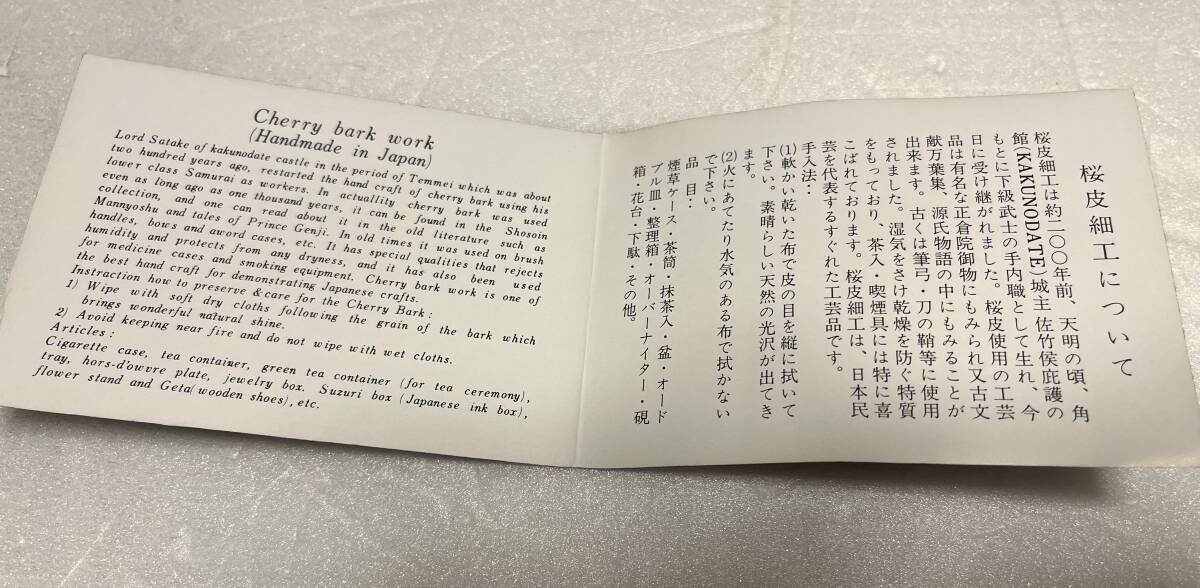 Cherry bark work
(Handmade in Japan)
Lord Satake of kakunodate castle in the period of Temmei which was about
two hundred years ago, restarted the hand craft of cherry bark using his
lower class Samurai as workers. In actuallity cherry bark was used
even as long ago as one thousand years, it can be found in the Shosoin
collection, and one can read about it in the old literature such as
Mannyoshu and tales of Prince Genji. In old times it was used on brush
handles, bows and aword cases, etc. It has special qualities that rejects
humidity and protects from any dryness, and it has also been used
for medicine cases and smoking equipment. Cherry bark work is one of
the best hand craft for demonstrating Japanese crafts.
Instraction how to preserve & care for the Cherry Bark:
1) Wipe with soft dry cloths following the grain of the bark which
brings wonderful natural shine.
2) Avoid keeping near fire and do not wipe with wet cloths.
Articles:
Cigarette case, tea container, green tea container (for tea ceremony),
tray, hors-d'ouvre plate, jewelry box. Suzuri box (Japanese ink box),
flower stand and Geta(wooden shoes), etc.
桜皮細工について
桜皮細工は約二〇〇年前、天明の頃、角
館(KAKUNODATE)城主 佐竹侯庇護の
もとに下級武士の手内職として生れ、今
日に受け継がれました。 桜皮使用の工芸
品は有名な正倉院御物にもみられ又古文
献万葉集、源氏物語の中にもみることが
出来ます。 古くは筆弓・刀の鞘等に使用
されました。湿気をさけ乾燥を防ぐ特質
をもっており、茶入・喫煙具には特に喜
こばれております。 桜皮細工は、日本民
芸を代表するすぐれた工芸品です。
手入法:
(1) 軟かい乾いた布で皮の目を縦に拭いて
下さい。素晴らしい天然の光沢が出てき
ます。
(2) 火にあてたり水気のある布で拭かない
で下さい。
品 目:
煙草ケース・茶筒・抹茶入・盆・オード
ブル皿・整理箱・オーバーナイター・硯
箱・花台・下駄・その他。